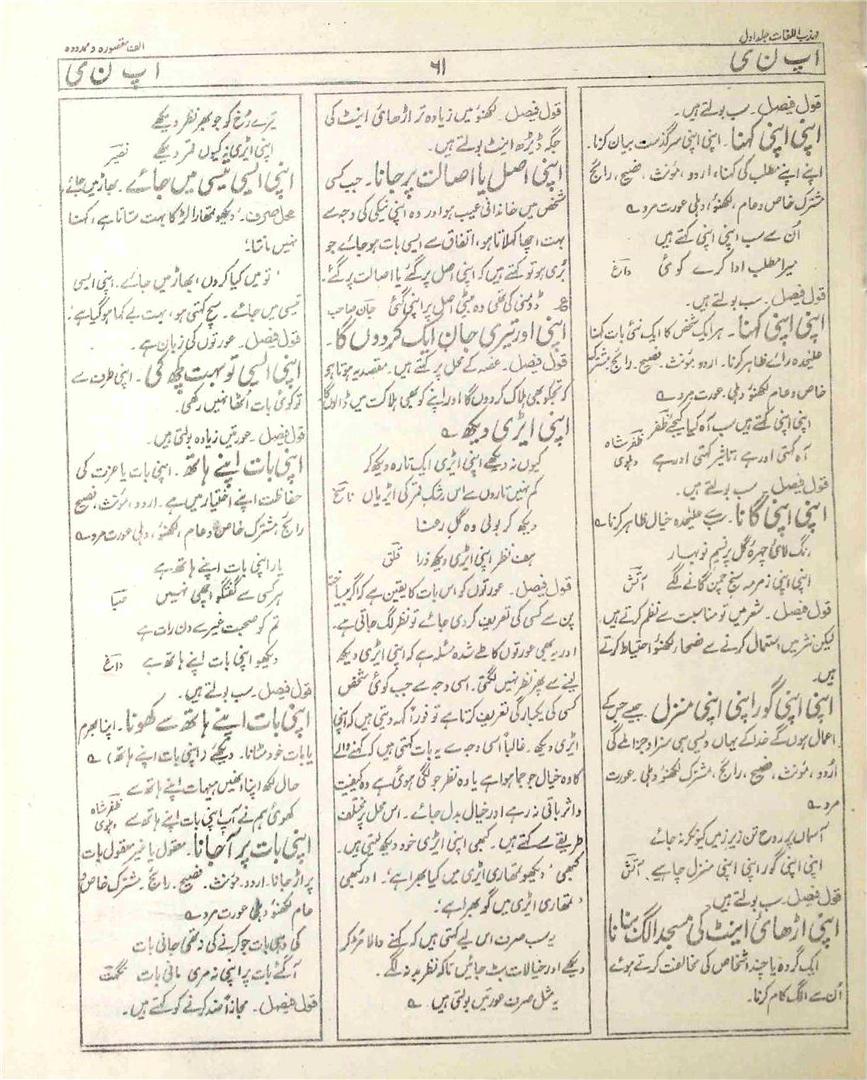 مہذب اللغات جلد اول
الف مقصورہ و ممدودہ
ا پ ن ی
۶۱
ا پ ن ی
قول فیصل۔ سب بولتے ہیں۔
اپنی اپنی کہنا۔ اپنی اپنی سرگذشت بیان کرنا۔
اپنے اپنے مطلب کی کہنا، اردو، مؤنث، فصیح، رائج
مشترک خاص و عام، لکھنؤ، دہلی عورت مرد ؎
اُن سے سب اپنی اپنی کہتے ہیں
میرا مطلب ادا کرے کوئی داغ
قول فیصل۔ سب بولتے ہیں۔
اپنی اپنی کہنا۔ ہر ایک شخص کا ایک نئی بات کہنا
علیحدہ رائے ظاہر کرنا۔ اردو، مؤنث۔ فصیح۔ رائج، مشترک
خاص و عام لکھنؤ و دہلی، عورت مرد ؎
اپنی اپنی کہتے ہیں سب آہ کیا کیجے ظفر ظفر شاہ
آہ کہتی اور ہے تاثیر کہتی اور ہے دہلوی
قول فیصل۔ سب بولتے ہیں۔
اپنی اپنی گانا۔ سب سے علیحدہ خیال ظاہر کرنا ؎
رنگ لائی چہرۂ گل پر نسیم نو بہار
اپنی اپنی زمزمہ سنج چمن گانے لگے آتش
قول فیصل۔ شعر میں تو مناسبت سے نظم کرتے ہیں
لیکن نثر میں استعمال کرنے سے فصحاء لکھنؤ احتیاط کرتے
ہیں۔
اپنی اپنی گور اپنی اپنی منزل۔ جیسے جس کے
اعمال ہوں گے خدا کے یہاں ویسی ہی سزا و جزا ملے گی
اردو، مؤنث، فصیح، رائج، مشترک لکھنؤ دہلی۔ عورت
مرد ؎
آسماں پر روح تن زیر زمیں کیونکر نہ جائے
اپنی اپنی گور اپنی اپنی منزل چاہیے آتش
قول فیصل۔ سب بولتے ہیں
اپنی اڑھائی اینٹ کی مسجد الگ بنانا
ایک گروہ یا چند اشخاص کی مخالفت کرتے ہوئے
اُن سے الگ کام کرنا۔
قول فیصل۔ لکھنؤ میں زیادہ تر اڑھائی اینٹ کی
جگہ ڈیڑھ اینٹ بولتے ہیں۔
اپنی اصل یا اصالت پر جانا۔ جب کسی
شخص میں خاندانی عیب ہو اور وہ اپنی نیکی کی وجہ سے
بہت اچھا کہلاتا ہو، اتفاق سے ایسی بات ہو جائے جو
بُری ہو تو کہتے ہیں کہ اپنی اصل پر گئے یا اصالت پر گئے۔
ع ڈومنی کی تھی وہ بیٹی اصل پر اپنی گئی جان صاحب
اپنی اور تیری جان ایک کر دوں گا۔
قول فیصل۔ غصہ کے محل پر کہتے ہیں۔ مقصد یہ ہوتا ہو
کہ تجکو بھی ہلاک کر دوں گا اور اپنے کو بھی ہلاکت میں ڈالوں گا
اپنی ایڑی دیکھ ؎
کیوں نہ دیکھے اپنی ایڑی ایک تارہ دیکھ کر
کم نہیں تاروں سے اس رشک قمر کی ایڑیاں ناسخ
دیکھ کر بولی وہ گل رعنا
ہف نظر اپنی ایڑی دیکھ ذرا قلق
قول فیصل۔ عورتوں کو اس بات کا یقین ہے کہ اگر بیساختہ
پن سے کسی کی تعریف کر دی جائے تو نظر لگ جاتی ہے۔
اور یہ بھی عورتوں کا طے شدہ مسئلہ ہے کہ اپنی ایڑی دیکھ
لینے سے پھر نظر نہیں لگتی۔ اسی وجہ سے جب کوئی شخص
کسی کی یکبارگی تعریف کرتا ہے تو فوراً کہہ دیتی ہیں کہ اپنی
ایڑی دیکھ۔ غالباً اسی وجہ سے یہ بات کہتی ہیں کہ کہنے والے
کا وہ خیال جو جما ہوا ہے یا وہ نظر جو لگی ہوئی ہے وہ کیفیت
و اثر باقی نہ رہے اور خیال بدل جائے۔ اس محل پر مختلف
طریقے سے کہتے ہیں۔ کبھی اپنی ایڑی خود دیکھ لیتی ہیں۔
کبھی 'دیکھو تمھاری ایڑی میں کیا بھرا ہے'۔ اور کبھی
'تمھاری ایڑی میں گو بھرا ہے'۔
یہ سب صرف اس لیے کہتی ہیں کہ کہنے والا مڑ کر
دیکھے اور خیالات بٹ جائیں تاکہ نظر بد نہ لگے۔
یہ مثل صرف عورتیں بولتی ہیں۔ ؎
تیرے رُخ کو جو بھر نظر دیکھے
اپنی ایڑی نہ کیوں قمر دیکھے نصیر
اپنی ایسی تیسی میں جائے۔ بھاڑ میں جائے
محل صرف۔ دیکھو تمھارا لڑکا بہت ستاتا ہے، کہنا
نہیں مانتا۔
'تو میں کیا کروں، بھاڑ میں جائے۔ اپنی ایسی
تیسی میں جائے۔ سچ کہتی ہو، بہت بے کہا ہو گیا ہے'
قول فیصل۔ عورتوں کی زبان ہے۔
اپنی ایسی تو بہت کچھ کی۔ اپنی طرف سے
تو کوئی بات اُٹھا نہیں رکھی۔
قول فیصل۔ عورتیں زیادہ بولتی ہیں۔
اپنی بات اپنے ہاتھ۔ اپنی بات یا عزت کی
حفاظت اپنے اختیار میں ہے۔ اردو، مؤنث، فصیح
رائج، مشترک خاص و عام، لکھنؤ، دہلی عورت مرد ؎
یار اپنی بات اپنے ہاتھ ہے
ہر کسی سے گفتگو اچھی نہیں صبا
تم کو صحبت غیر سے دن رات ہے
دیکھو اپنی بات اپنے ہاتھ ہے داغ
قول فیصل۔ سب بولتے ہیں۔
اپنی بات اپنے ہاتھ سے کھونا۔ اپنا بھرم
یا بات خود مٹانا۔ دیکھیے (اپنی بات اپنے ہاتھ) ؎
حال لکھ اپنا انھیں ہیہات اپنے ہاتھ سے
کھوئی ہم نے آپ اپنی بات اپنے ہاتھ سے ظفر شاہ دہلوی
اپنی بات پر آ جانا۔ معقول یا غیر معقول بات
پر اڑ جانا۔ اردو۔ مؤنث۔ فصیح۔ رائج۔ مشترک خاص و
عام لکھنؤ دہلی عورت مرد ؎
کی وہی بات جو کرنے کی نہ تھی جانی بات
آگئے بات پر اپنی نہ مری مانی بات نگہت
قول فیصل۔ مجازاً ضد کرنے کو کہتے ہیں۔